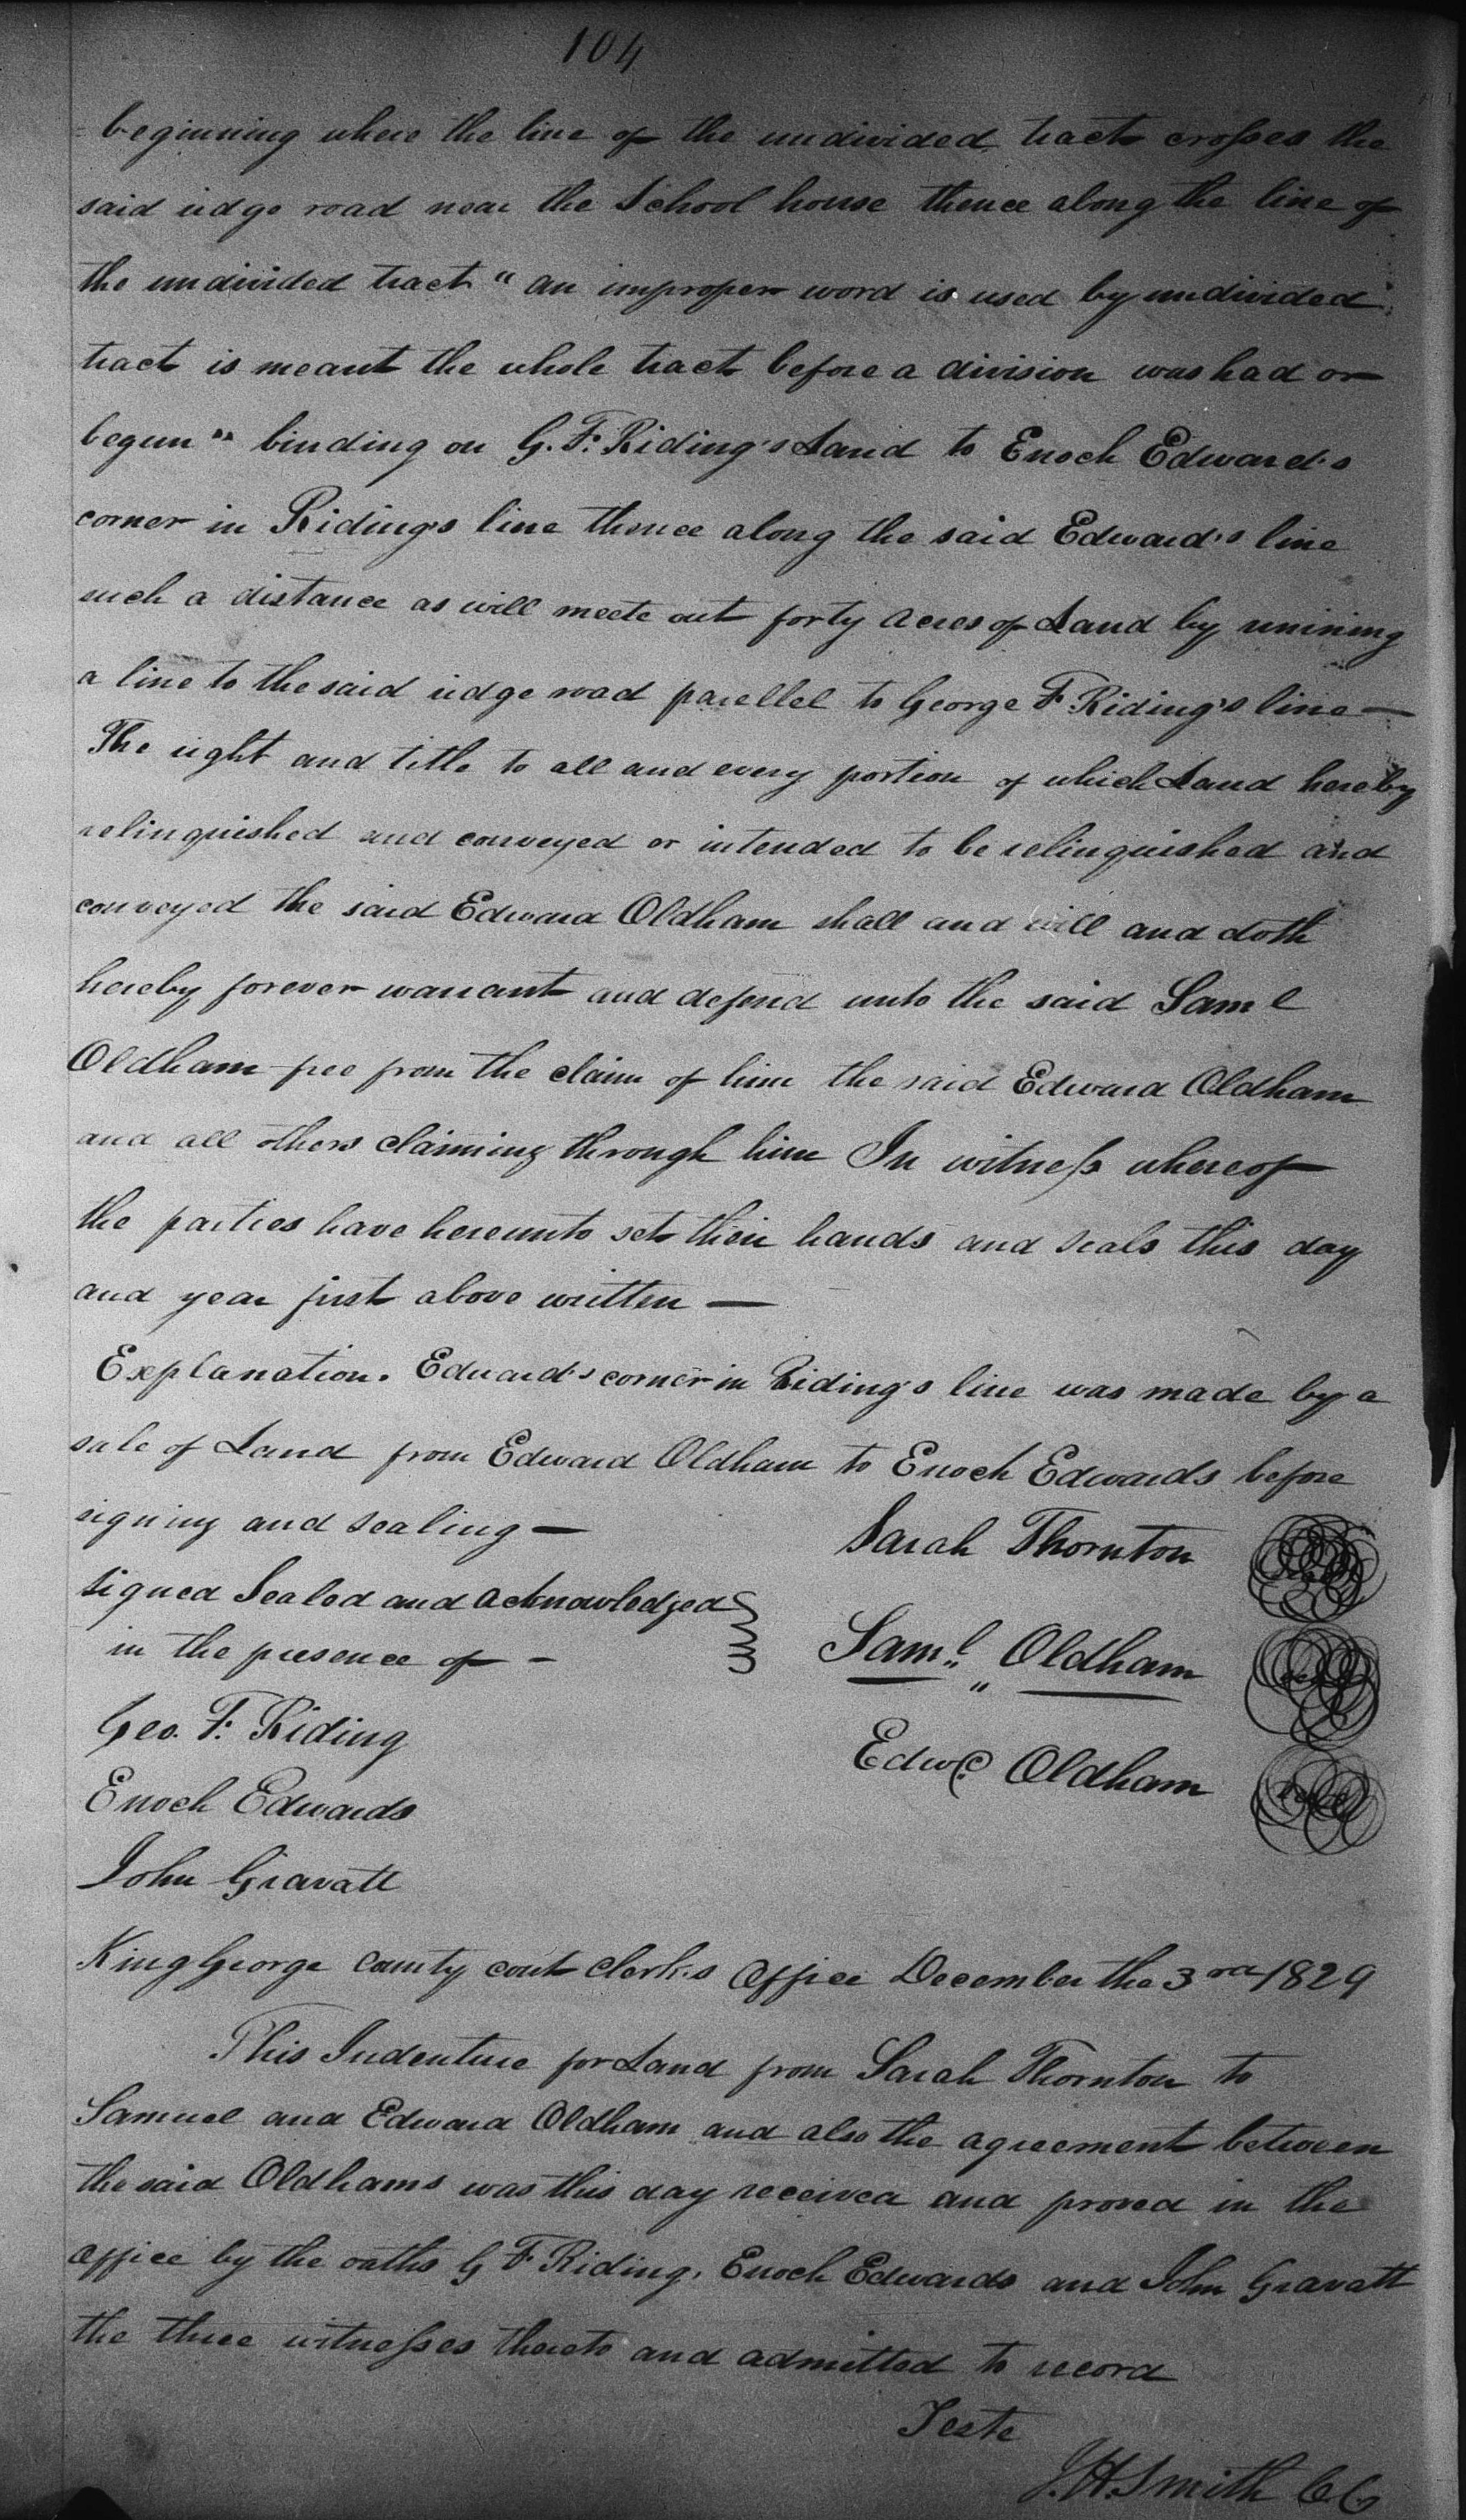 104
beginning where the line of the undivided tract crosses the
said ridge road near the School house thence along the line of
the undivided tract " an improper word is used by undivided
tract is meant the whole tract before a division was had or
begun " binding on G. F. Riding's Land to Enoch Edward's
corner in Riding's line thence along the said Edward's line
such a distance as will meete out forty acres of Land by runing
a line to the said ridge road parellel to George F Riding's line —
The right and title to all and every portion of which Land hereby
relinquished and conveyed or intended to be relinquished and
conveyed the said Edward Oldham shall and will and doth
hereby forever warrant and defend unto the said Saml
Oldham free from the claim of him the said Edward Oldham
and all others claiming through him In witness whereof
the parties have hereunto set their hands and seals this day
and year first above written —
Explanation. Edward's corner in Riding's line was made by a
sale of Land from Edward Oldham to Enoch Edwards before
signing and sealing —
Sarah Thornton seal
signed Sealed and acknowledged
in the presence of -
Saml. Oldham seal
Geo. F. Riding
Edwd. Oldham seal
Enoch Edwards
John Gravatt
King George county court clerk's Office December the 3rd 1829
This Indenture for Land from Sarah Thornton to
Samuel and Edward Oldham and also the agreement between
the said Oldhams was this day received and proved in the
office by the oaths G F Riding, Enoch Edwards and John Gravatt
the three witnesses thereto and admitted to record
Teste
J. H. Smith CC